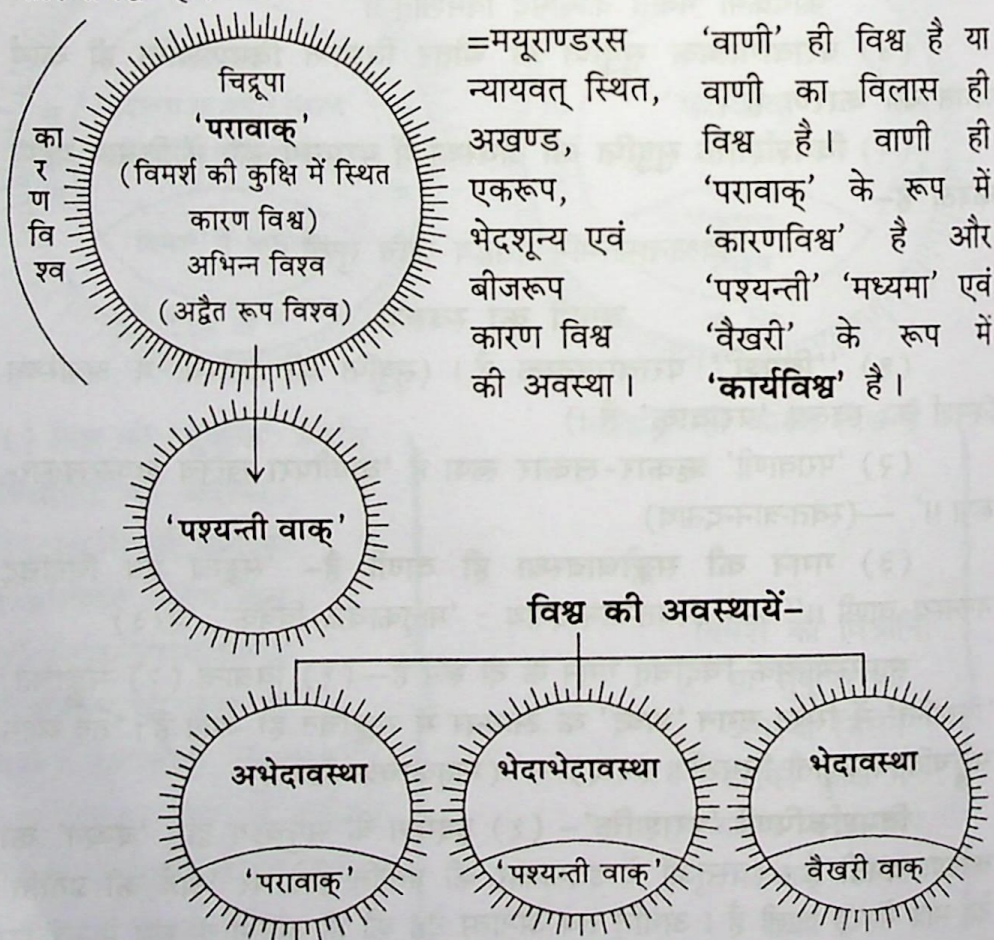 का
र
ण
वि
श्व
चिद्रूपा
‘परावाक्’
(विमर्श की कुक्षि में स्थित
कारण विश्व)
अभिन्न विश्व
(अद्वैत रूप विश्व)
=मयूराण्डरस
न्यायवत् स्थित,
अखण्ड,
एकरूप,
भेदशून्य एवं
बीजरूप
कारण विश्व
की अवस्था।
‘वाणी’ ही विश्व है या
वाणी का विलास ही
विश्व है। वाणी ही
‘परावाक्’ के रूप में
‘कारणविश्व’ है और
‘पश्यन्ती’ ‘मध्यमा’ एवं
‘वैखरी’ के रूप में
‘कार्यविश्व’ है।
‘पश्यन्ती वाक्’
विश्व की अवस्थायें–
अभेदावस्था
‘परावाक्’
भेदाभेदावस्था
‘पश्यन्ती वाक्’
भेदावस्था
वैखरी वाक्